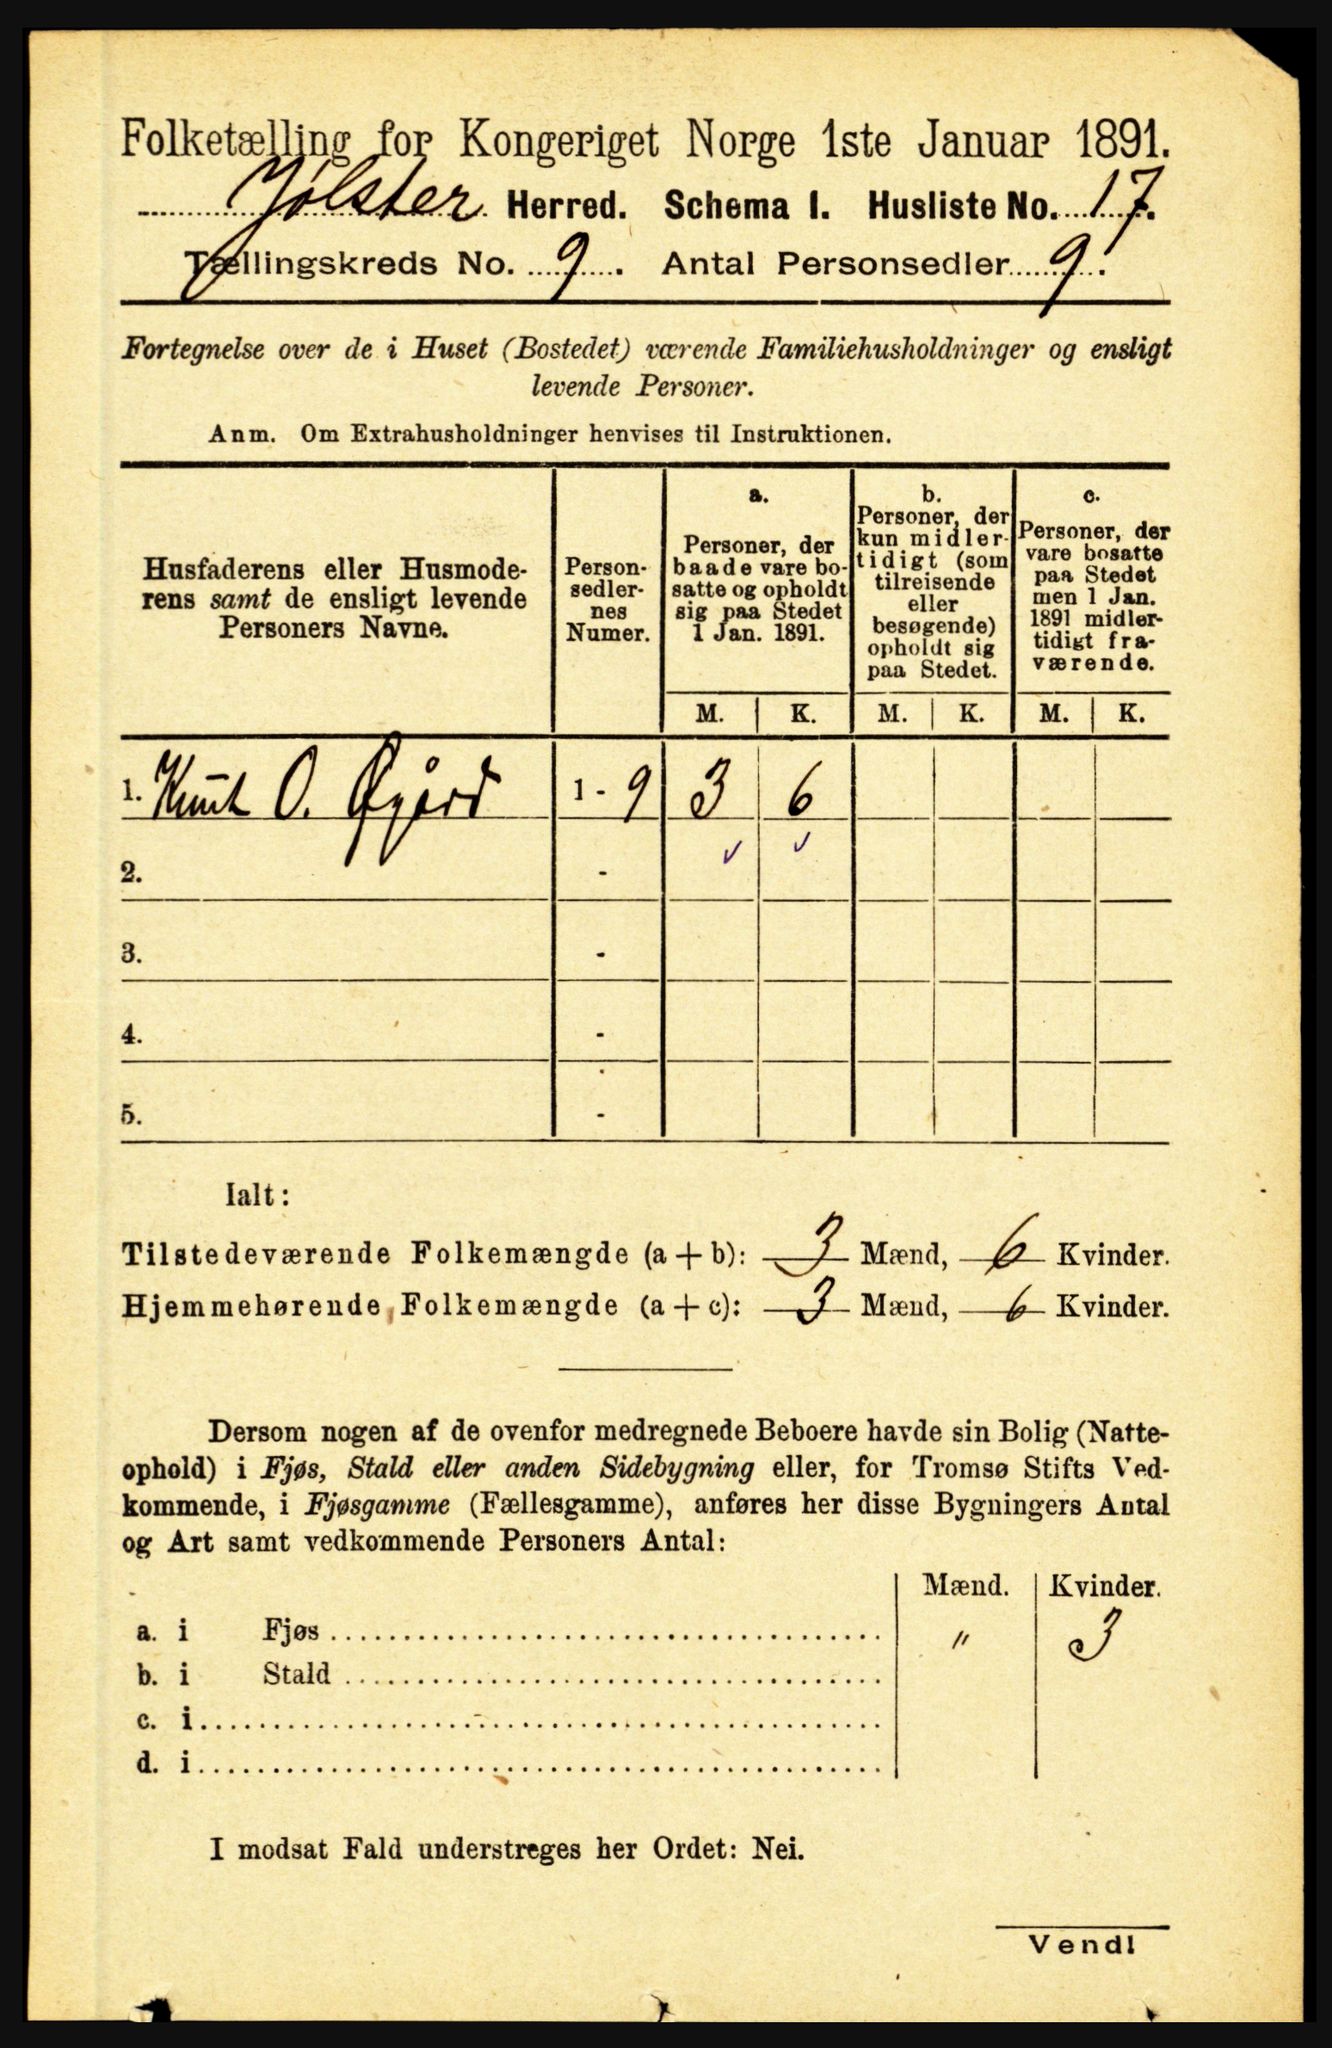 Folketælling for Kongeriget Norge 1ste Januar 1891.
Jølster Herred. Schema I. Husliste No. 17.
Tællingskreds No. 9. Antal Personsedler 9.
Fortegnelse over de i Huset (Bostedet) værende Familiehusholdninger og ensligt
levende Personer.
Anm. Om Extrahusholdninger henvises til Instruktionen.
Husfaderens eller Husmode-
rens samt de ensligt levende
Personers Navne.
Person-
sedler-
nes
Numer.
a.
Personer, der
baade vare bo-
satte og opholdt
sig paa Stedet
1 Jan. 1891.
b.
Personer, der
kun midler-
tidigt (som
tilreisende
eller
besøgende)
opholdt sig
paa Stedet.
c.
Personer, der
vare bosatte
paa Stedet
men 1 Jan.
1891 midler-
tidigt fra-
værende.
M. K. M. K. M. K.
1. Knut O. Øgård 1 - 9 3 6
2. -
3. -
4. -
5. -
Ialt:
Tilstedeværende Folkemængde (a + b): 3 Mænd, 6 Kvinder.
Hjemmehørende Folkemængde (a + c): 3 Mænd, 6 Kvinder.
Dersom nogen af de ovenfor medregnede Beboere havde sin Bolig (Natte-
ophold) i Fjøs, Stald eller anden Sidebygning eller, for Tromsø Stifts Ved-
kommende, i Fjøsgamme (Fællesgamme), anføres her disse Bygningers Antal
og Art samt vedkommende Personers Antal:
Mænd. Kvinder.
a. i Fjøs " 3
b. i Stald
c. i
d. i
I modsat Fald understreges her Ordet: Nei.
Vend!